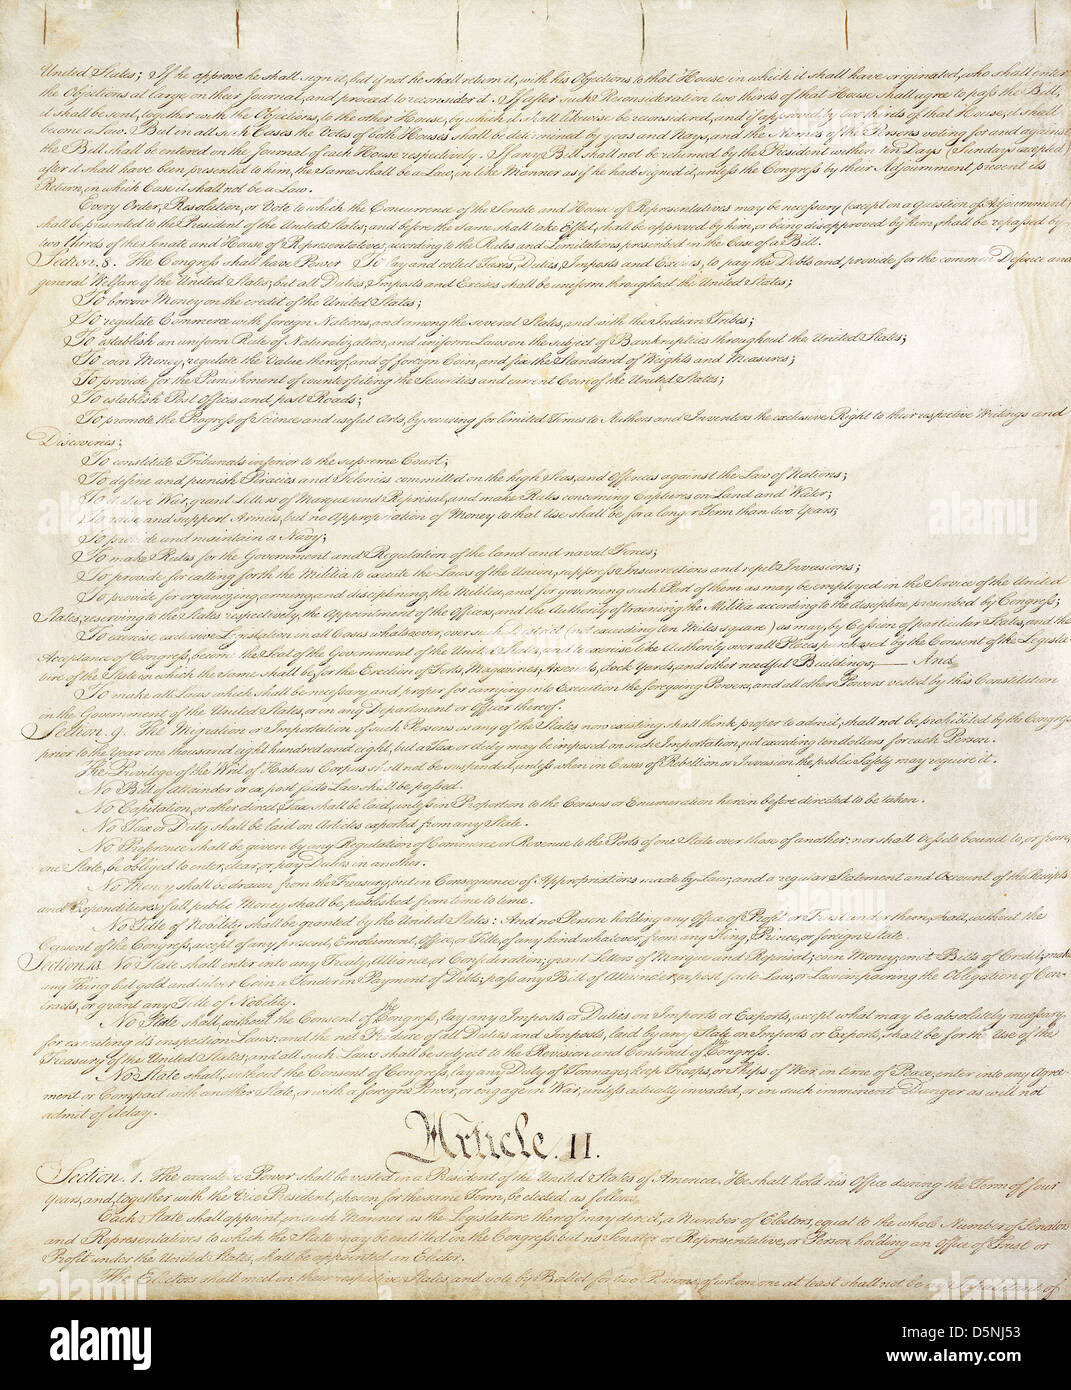 United States; If he approve he shall sign it, but if not he shall return it, with his Objections to that House in which it shall have originated, who shall enter
the Objections at large on their Journal, and proceed to reconsider it. If after such Reconsideration two thirds of that House shall agree to pass the Bill,
it shall be sent, together with the Objections, to the other House, by which it shall likewise be reconsidered, and if approved by two thirds of that House, it shall
become a Law. But in all such Cases the Votes of both Houses shall be determined by yeas and Nays, and the Names of the Persons voting for and against
the Bill shall be entered on the Journal of each House respectively. If any Bill shall not be returned by the President within ten Days (Sundays excepted)
after it shall have been presented to him, the Same shall be a Law, in like Manner as if he had signed it, unless the Congress by their Adjournment prevent its
Return, in which Case it shall not be a Law.
Every Order, Resolution, or Vote to which the Concurrence of the Senate and House of Representatives may be necessary (except on a question of Adjournment)
shall be presented to the President of the United States; and before the Same shall take Effect, shall be approved by him, or being disapproved by him, shall be repassed by
two thirds of the Senate and House of Representatives, according to the Rules and Limitations prescribed in the Case of a Bill.
Section. 8. The Congress shall have Power To lay and collect Taxes, Duties, Imposts and Excises, to pay the Debts and provide for the common Defence and
general Welfare of the United States; but all Duties, Imposts and Excises shall be uniform throughout the United States;
To borrow Money on the credit of the United States;
To regulate Commerce with foreign Nations, and among the several States, and with the Indian Tribes;
To establish an uniform Rule of Naturalization, and uniform Laws on the subject of Bankruptcies throughout the United States;
To coin Money, regulate the Value thereof, and of foreign Coin, and fix the Standard of Weights and Measures;
To provide for the Punishment of counterfeiting the Securities and current Coin of the United States;
To establish Post Offices and post Roads;
To promote the Progress of Science and useful Arts, by securing for limited Times to Authors and Inventors the exclusive Right to their respective Writings and
Discoveries;
To constitute Tribunals inferior to the supreme Court;
To define and punish Piracies and Felonies committed on the high Seas, and Offences against the Law of Nations;
To declare War, grant Letters of Marque and Reprisal, and make Rules concerning Captures on Land and Water;
To raise and support Armies, but no Appropriation of Money to that Use shall be for a longer Term than two Years;
To provide and maintain a Navy;
To make Rules for the Government and Regulation of the land and naval Forces;
To provide for calling forth the Militia to execute the Laws of the Union, suppress Insurrections and repel Invasions;
To provide for organizing, arming, and disciplining, the Militia, and for governing such Part of them as may be employed in the Service of the United
States, reserving to the States respectively, the Appointment of the Officers, and the Authority of training the Militia according to the discipline prescribed by Congress;
To exercise exclusive Legislation in all Cases whatsoever, over such District (not exceeding ten Miles square) as may, by Cession of particular States, and the
Acceptance of Congress, become the Seat of the Government of the United States, and to exercise like Authority over all Places purchased by the Consent of the Legisla-
ture of the State in which the Same shall be, for the Erection of Forts, Magazines, Arsenals, dock-Yards, and other needful Buildings;—And
To make all Laws which shall be necessary and proper for carrying into Execution the foregoing Powers, and all other Powers vested by this Constitution
in the Government of the United States, or in any Department or Officer thereof.
Section. 9. The Migration or Importation of such Persons as any of the States now existing shall think proper to admit, shall not be prohibited by the Congress
prior to the Year one thousand eight hundred and eight, but a Tax or duty may be imposed on such Importation, not exceeding ten dollars for each Person.
The Privilege of the Writ of Habeas Corpus shall not be suspended, unless when in Cases of Rebellion or Invasion the public Safety may require it.
No Bill of Attainder or ex post facto Law shall be passed.
No Capitation, or other direct, Tax shall be laid, unless in Proportion to the Census or Enumeration herein before directed to be taken.
No Tax or Duty shall be laid on Articles exported from any State.
No Preference shall be given by any Regulation of Commerce or Revenue to the Ports of one State over those of another: nor shall Vessels bound to, or from,
one State, be obliged to enter, clear, or pay Duties in another.
No Money shall be drawn from the Treasury, but in Consequence of Appropriations made by Law; and a regular Statement and Account of the Receipts
and Expenditures of all public Money shall be published from time to time.
No Title of Nobility shall be granted by the United States: And no Person holding any Office of Profit or Trust under them, shall, without the
Consent of the Congress, accept of any present, Emolument, Office, or Title, of any kind whatever, from any King, Prince, or foreign State.
Section. 10. No State shall enter into any Treaty, Alliance, or Confederation; grant Letters of Marque and Reprisal; coin Money; emit Bills of Credit; make
any Thing but gold and silver Coin a Tender in Payment of Debts; pass any Bill of Attainder, ex post facto Law, or Law impairing the Obligation of Con-
tracts, or grant any Title of Nobility.
No State shall, without the Consent of the Congress, lay any Imposts or Duties on Imports or Exports, except what may be absolutely necessary
for executing its inspection Laws: and the net Produce of all Duties and Imposts, laid by any State on Imports or Exports, shall be for the Use of the
Treasury of the United States; and all such Laws shall be subject to the Revision and Controul of the Congress.
No State shall, without the Consent of Congress, lay any Duty of Tonnage, keep Troops, or Ships of War in time of Peace, enter into any Agree-
ment or Compact with another State, or with a foreign Power, or engage in War, unless actually invaded, or in such imminent Danger as will not
admit of delay.
Article. II.
Section. 1. The executive Power shall be vested in a President of the United States of America. He shall hold his Office during the Term of four
Years, and, together with the Vice President, chosen for the same Term, be elected, as follows
Each State shall appoint, in such Manner as the Legislature thereof may direct, a Number of Electors, equal to the whole Number of Senators
and Representatives to which the State may be entitled in the Congress: but no Senator or Representative, or Person holding an Office of Trust or
Profit under the United States, shall be appointed an Elector.
The Electors shall meet in their respective States, and vote by Ballot for two Persons, of whom one at least shall not be an Inhabitant of
alamy
Image ID: D5NJ53
www.alamy.com